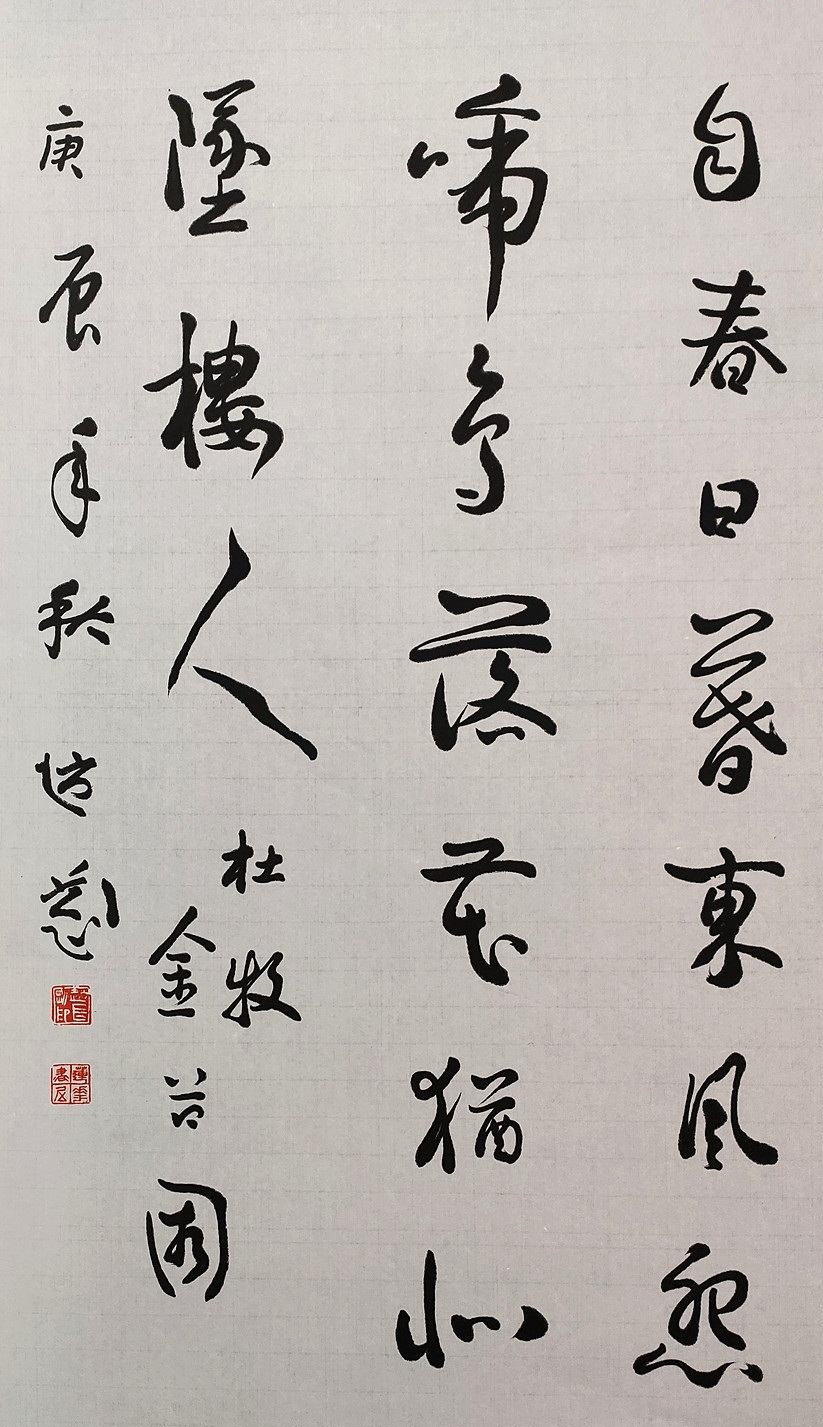 自春日暮東風怨
啼鳥落花猶似
墜樓人
杜牧
金谷園
庚辰年秋